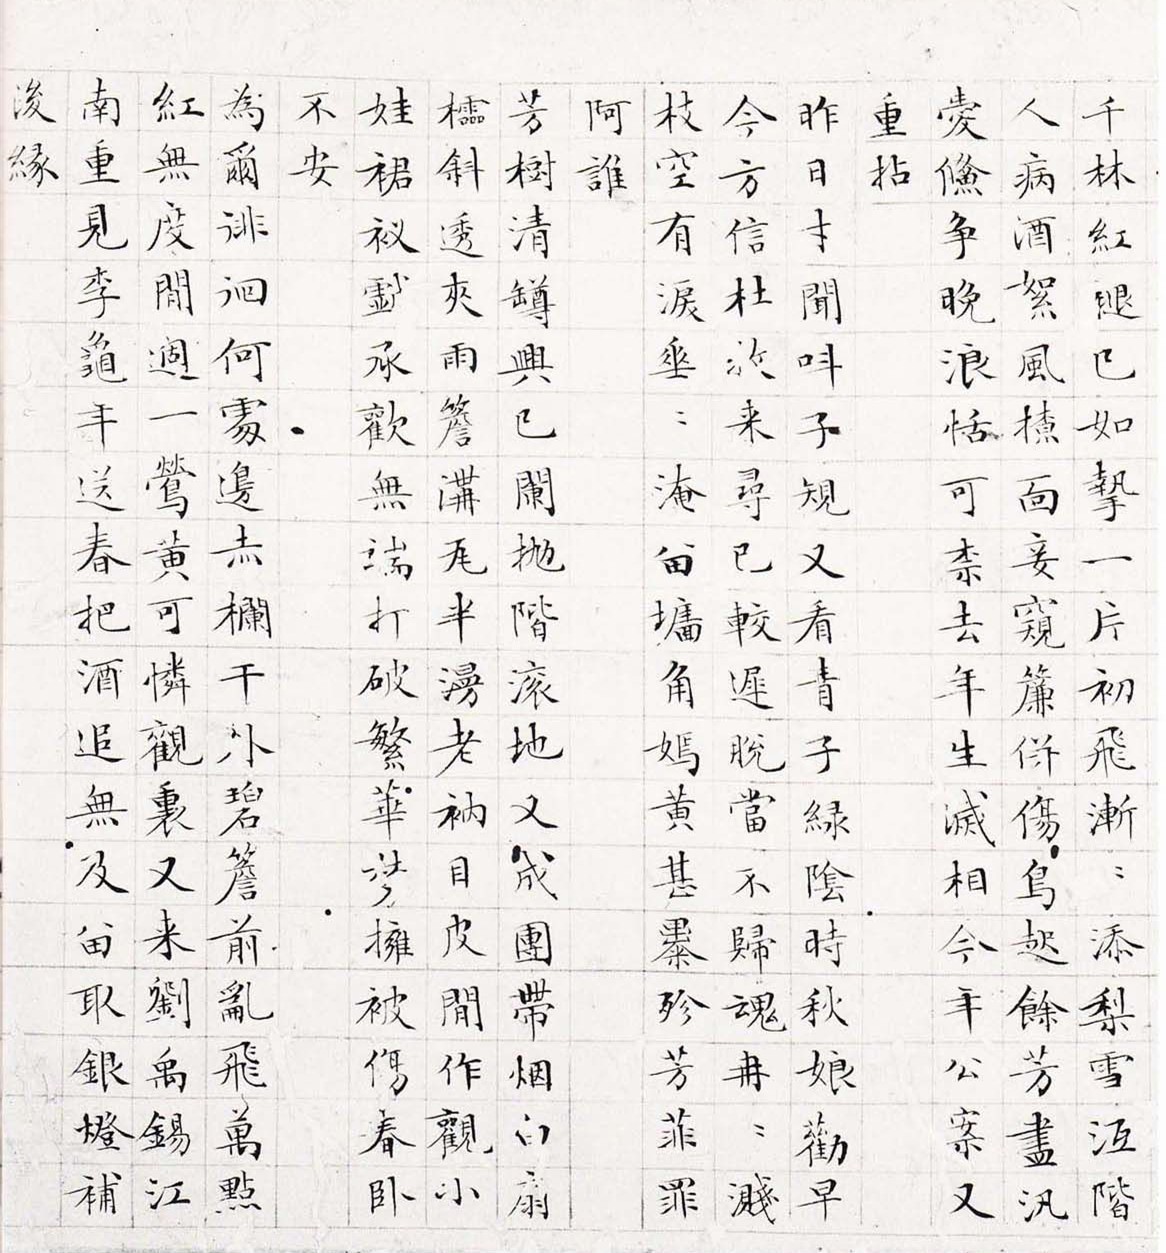 千林紅褪已如摯一片初飛漸〻添梨雪沍階
人病酒絮風撲面妾窺簾併傷鳥起餘芳盡汎
愛儉爭晚浪恬可柰去年生滅相今年公案又
重拈
昨日才聞叫子規又看青子綠陰時秋娘勸早
今方信杜牧来尋已較遲脫當不歸魂冉〻濺
枝空有淚垂〻淹留墻角嫣黃甚暴殄芳菲罪
阿誰
芳樹清罇興已闌拋階滾地又成團帶烟白扇
櫺斜透夾雨簷溝尾半漫老衲目皮閒作觀小
娃裙衩戲承歡無端打破繁華夢擁被傷春臥
不安
為爾徘徊何處邊赤欄干外碧簷前亂飛萬點
紅無度閒遇一鶯黃可憐觀裏又来劉禹錫江
南重見李龜年送春把酒追無及留取銀燈補
後緣